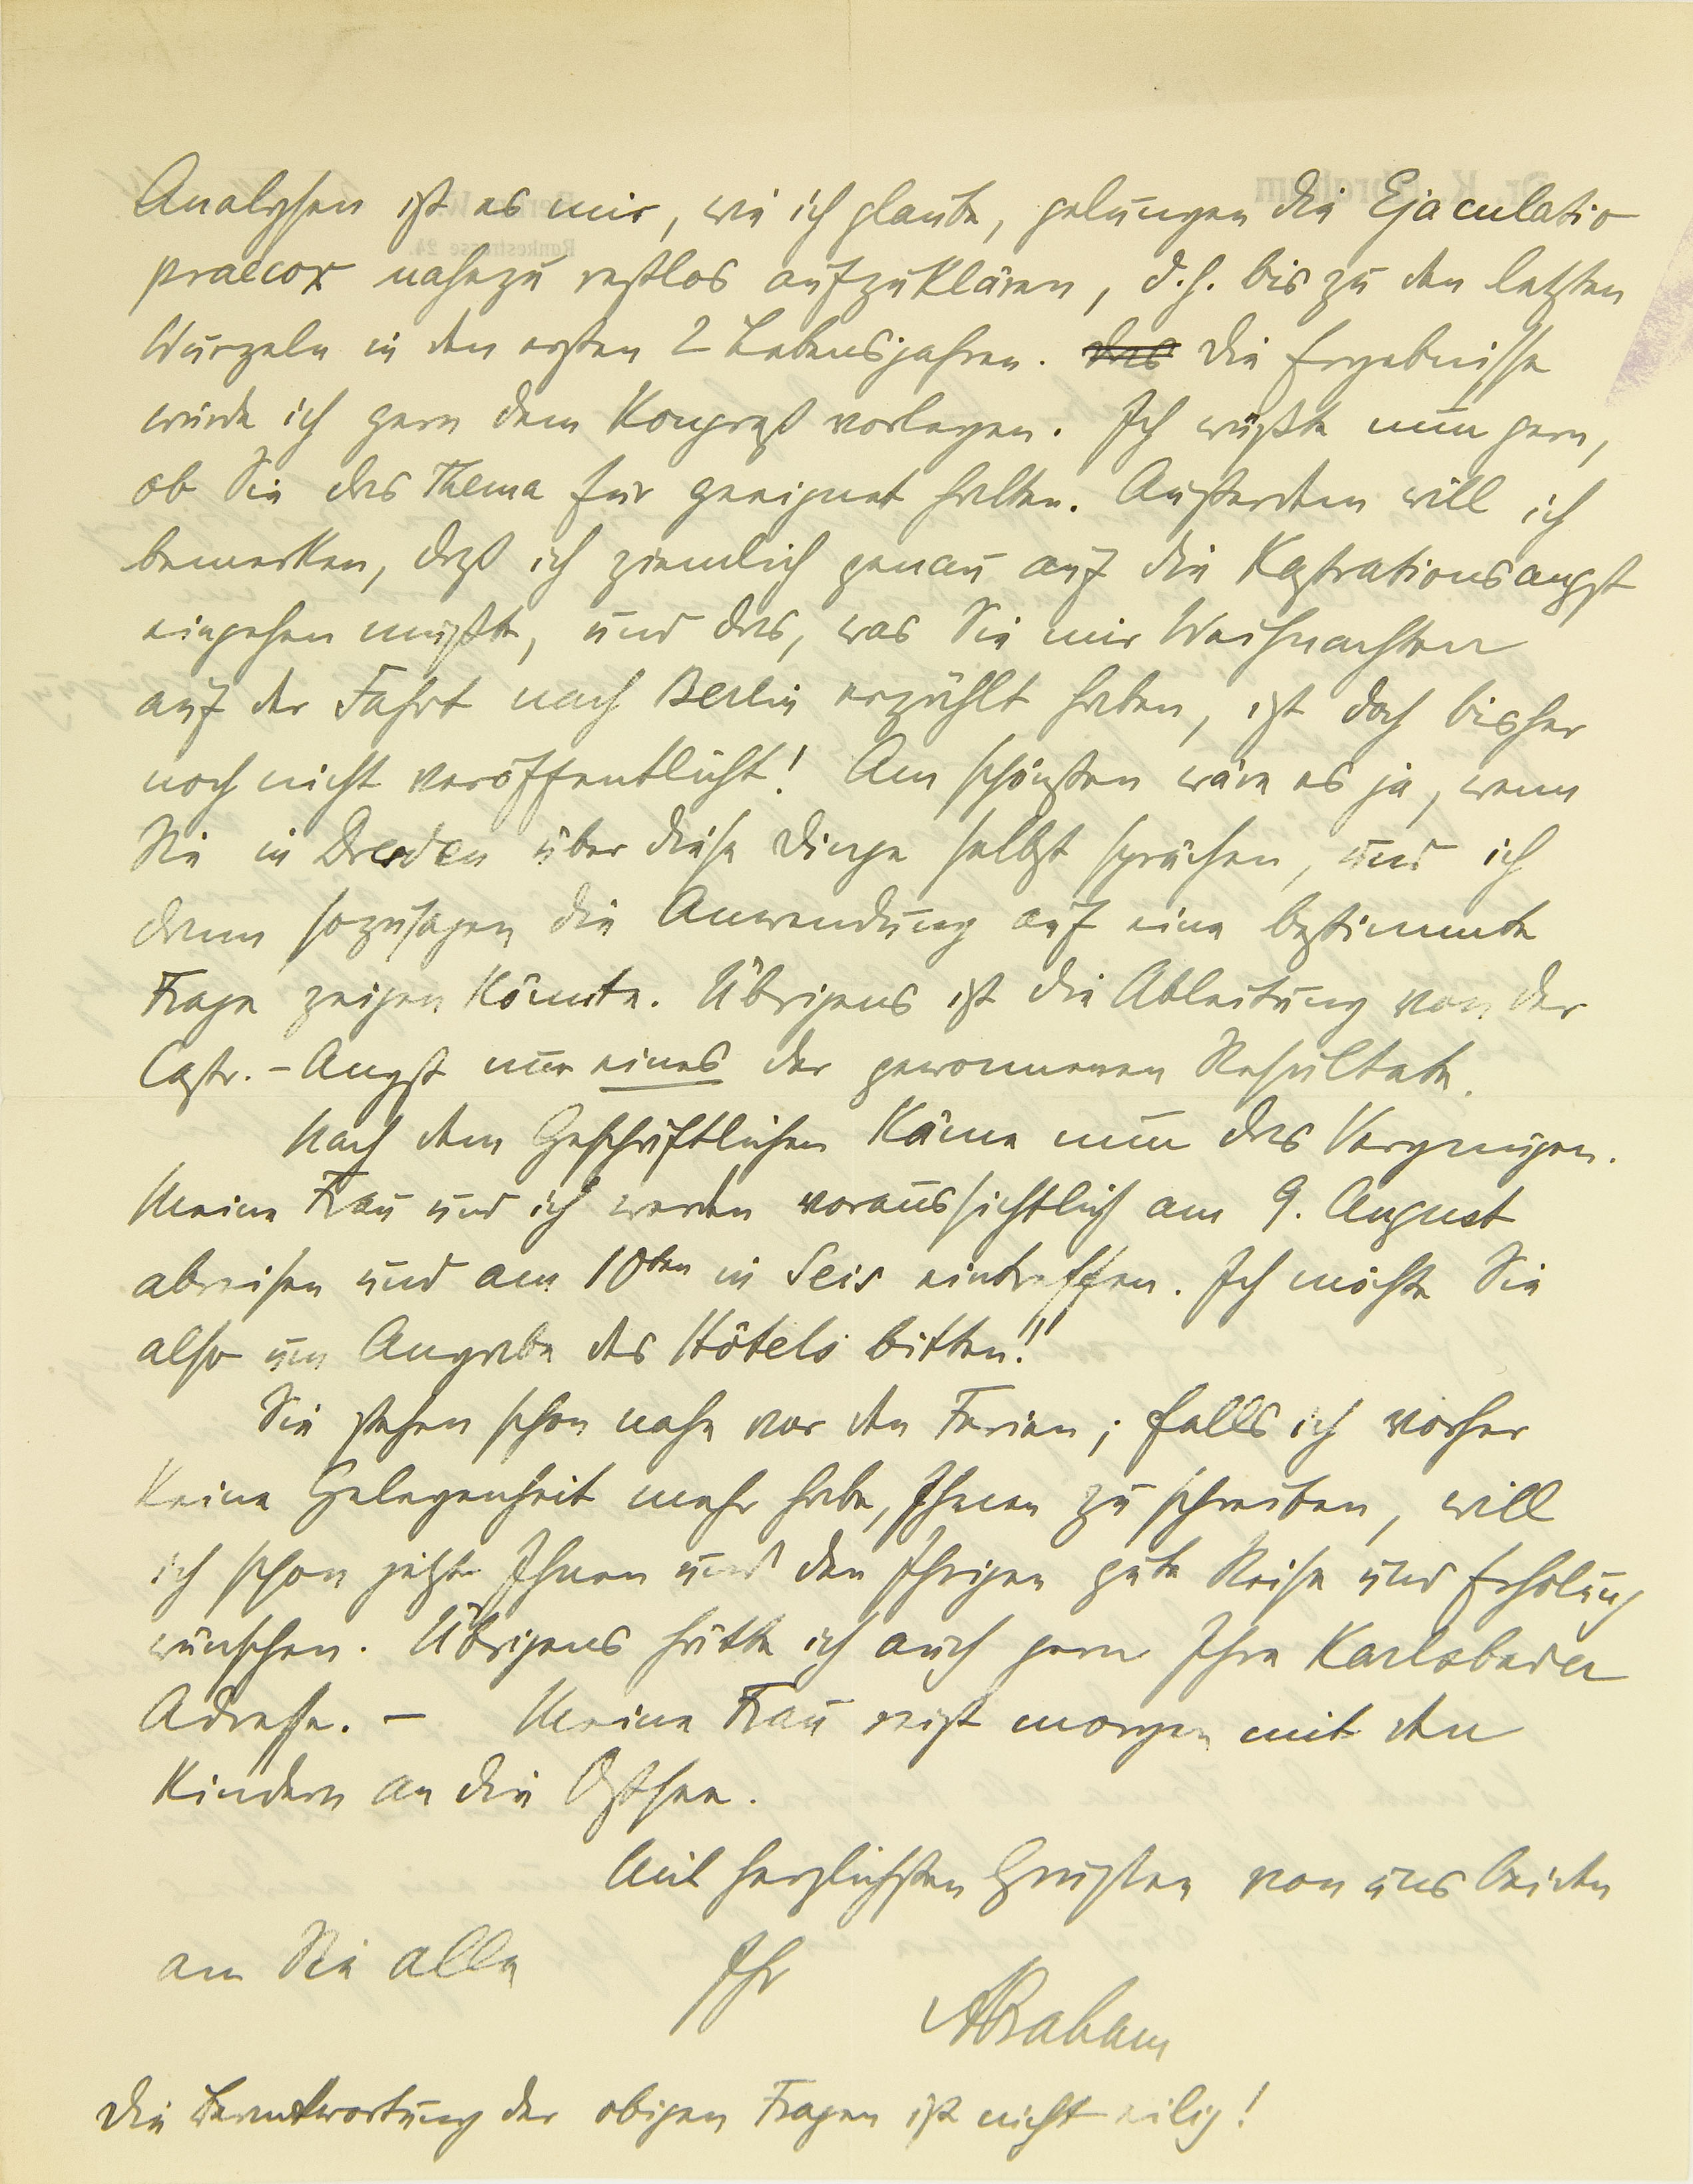 Analysen ist es mir, wie ich glaube, gelungen die Ejaculatio
praecox nahezu restlos aufzuklären, d.h. bis zu den letzten
Wurzeln in den ersten 2 Lebensjahren. das Die Ergebnisse
würde ich gern dem Kongreß vorlegen. Ich wüßte nun gern,
ob Sie das Thema für geeignet halten. Außerdem will ich
bemerken, daß ich ziemlich genau auf die Kastrationsangst
eingehen müßte, und das, was Sie mir Weihnachten
auf der Fahrt nach Berlin erzählt haben, ist doch bisher
noch nicht veröffentlicht! Am schönsten wäre es ja, wenn
Sie in Dresden über diese Dinge selbst sprächen, und ich
dann sozusagen die Anwendung auf eine bestimmte
Frage zeigen könnte. Übrigens ist die Ableitung von der
Castr.-Angst nur eines der gewonnenen Resultate.
Nach dem Geschäftlichen käme nun das Vergnügen.
Meine Frau und ich werden voraussichtlich am 9. August
abreisen und am 10ten in Seis eintreffen. Ich möchte Sie
also um Angabe des Hôtels bitten!!
Sie stehen schon nahe vor den Ferien; falls ich vorher
keine Gelegenheit mehr habe, Ihnen zu schreiben, will
ich schon jetzt Ihnen und den Ihrigen gute Reise und Erholung
wünschen. Übrigens hätte ich auch gern Ihre Karlsbader
Adresse. — Meine Frau reist morgen mit den
Kindern an die Ostsee.
Mit herzlichsten Grüßen von uns beiden
an Sie alle Ihr
Abraham
Die Beantwortung der obigen Fragen ist nicht eilig!